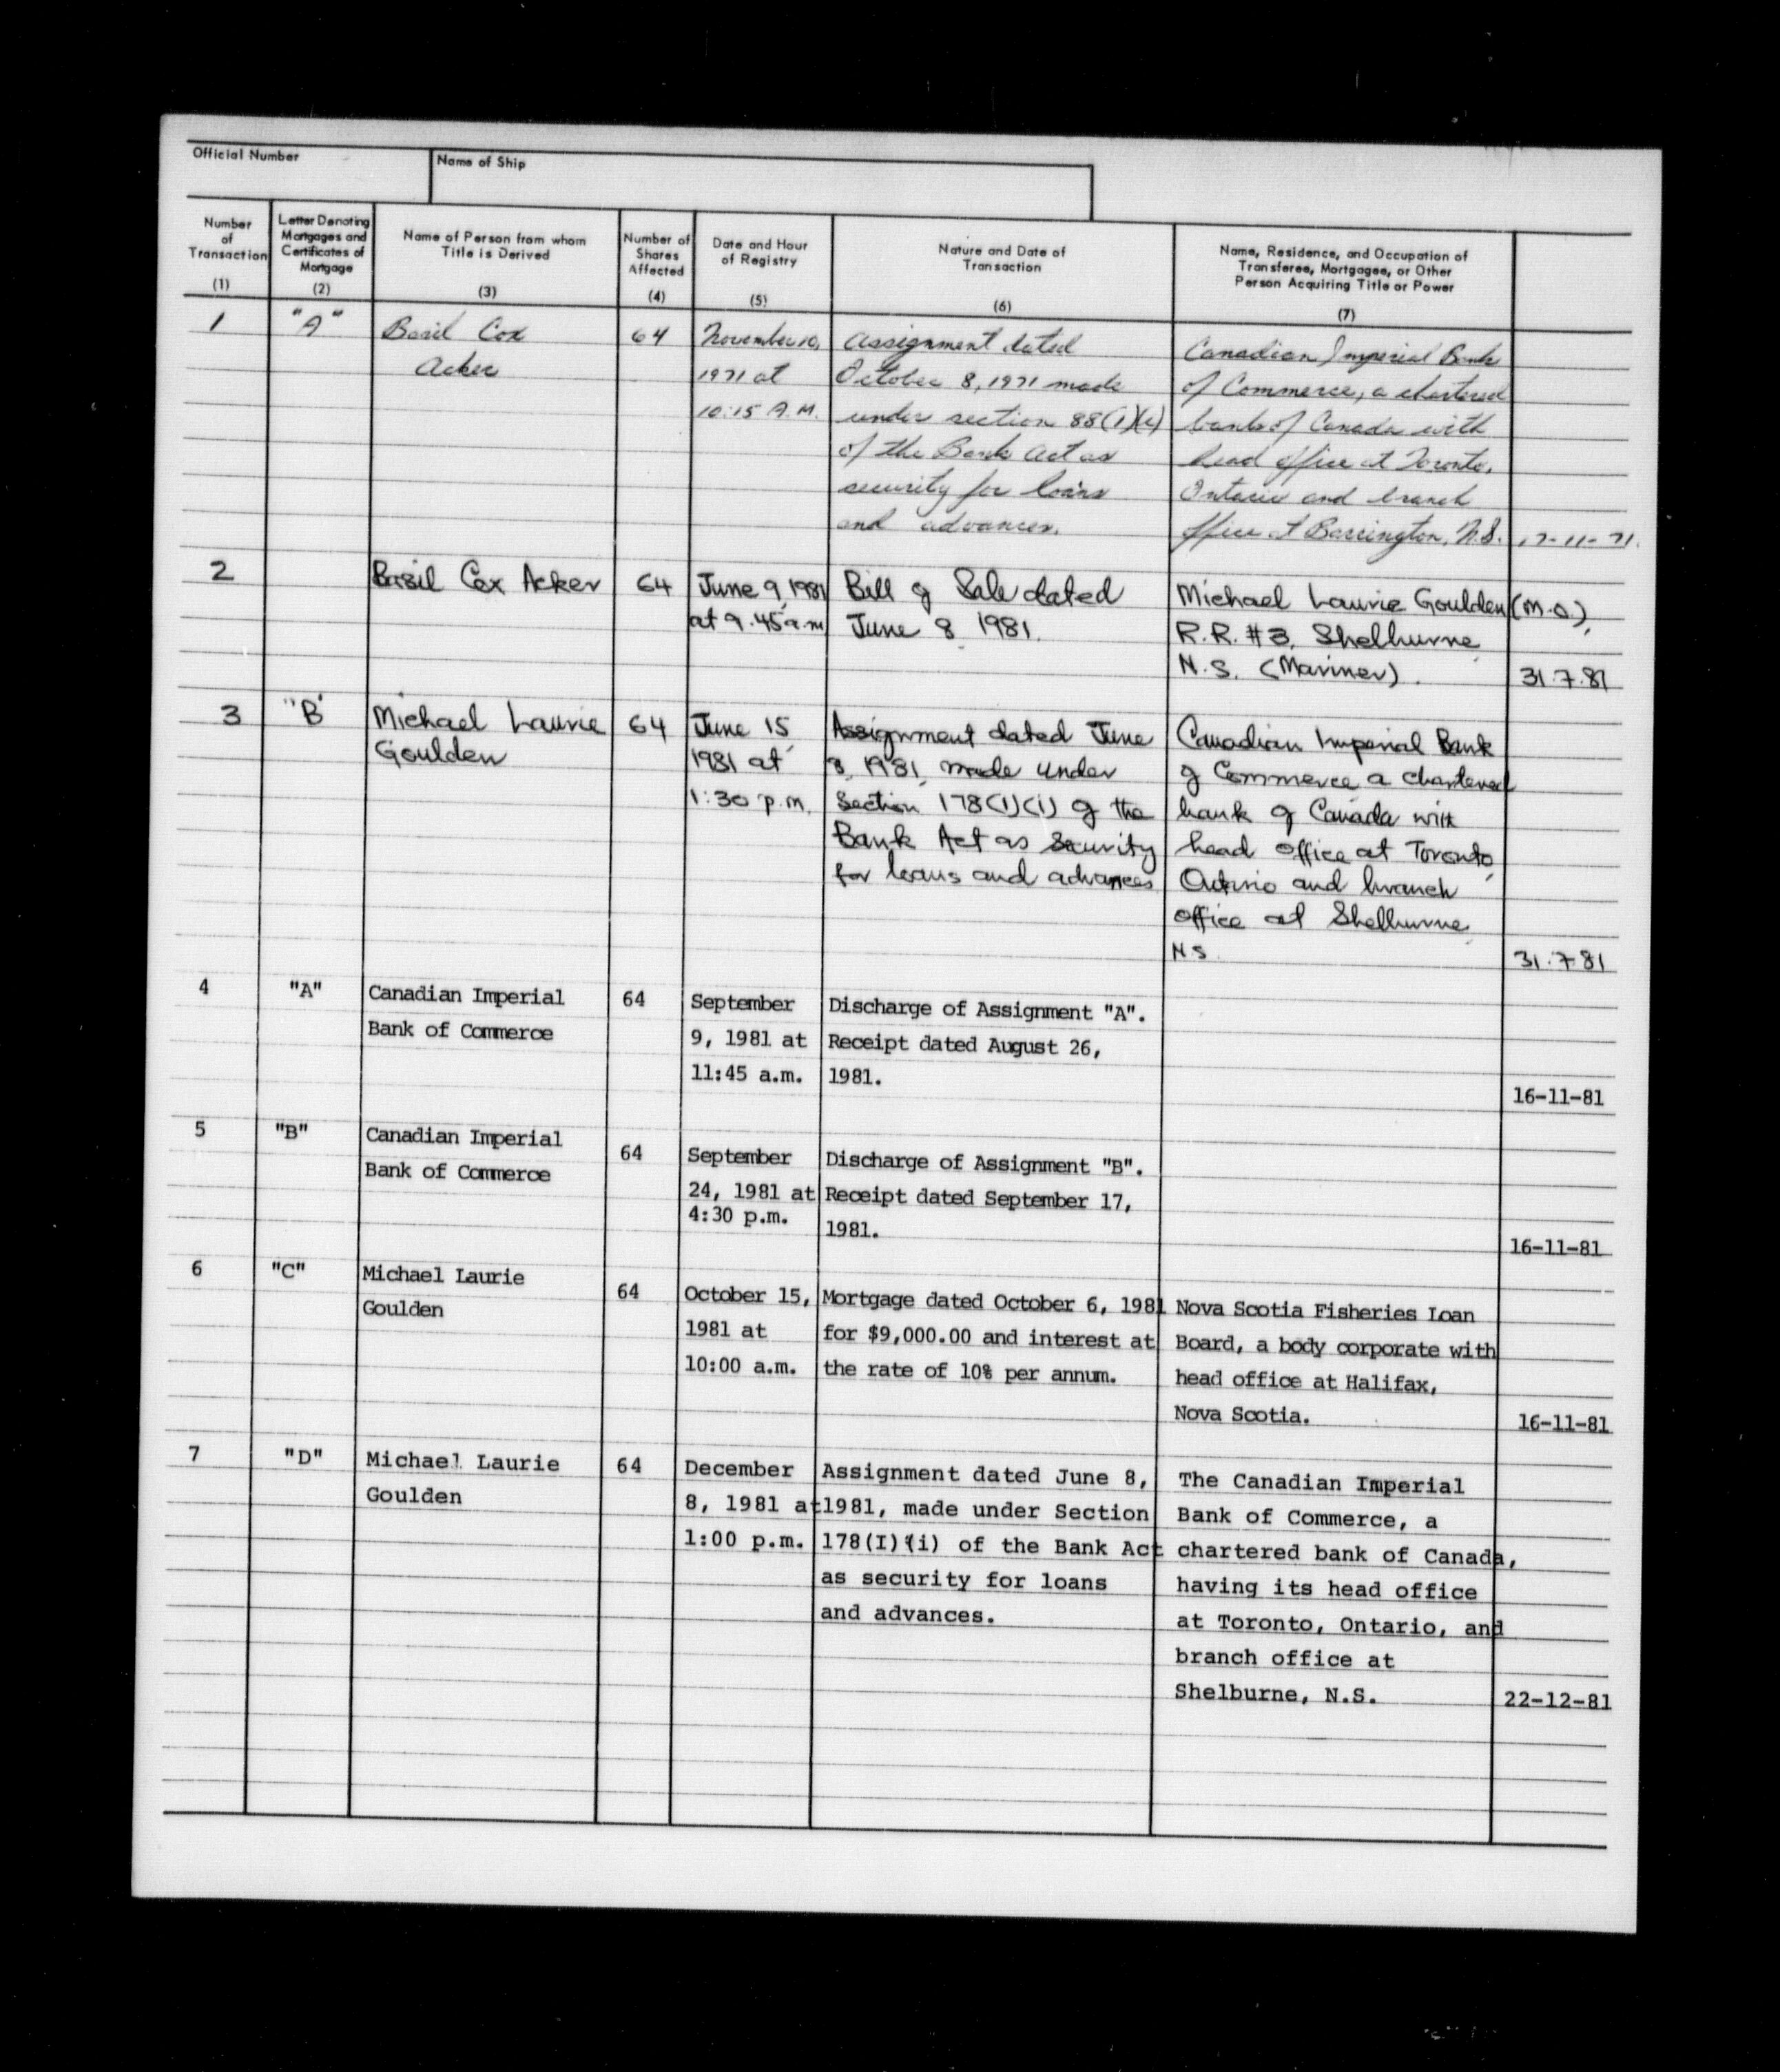 Official Number
Name of Ship
Number
of
Transaction
(1)
Letter Denoting
Mortgages and
Certificates of
Mortgage
(2)
Name of Person from whom
Title is Derived
(3)
Number of
Shares
Affected
(4)
Date and Hour
of Registry
(5)
Nature and Date of
Transaction
(6)
Name, Residence, and Occupation of
Transferee, Mortgagee, or Other
Person Acquiring Title or Power
(7)
1
"A"
Basil Cox
Acker
64
November 10,
1971 at
10:15 A.M.
Assignment dated
October 8, 1971 made
under section 88(1)
of the Bank Act as
security for loans
and advances.
Canadian Imperial Bank
of Commerce, a chartered
bank of Canada with
head office at Toronto,
Ontario and branch
office at Barrington, N.S.
17-11-71.
2
Basil Cox Acker
64
June 9, 1981
at 9.45 a.m
Bill of Sale dated
June 8, 1981.
Michael Laurie Goulden (M.O.),
R.R. #3, Shelburne,
N.S. (Mariner).
31.7.81
3
"B"
Michael Laurie
Goulden
64
June 15,
1981 at
1:30 p.m.
Assignment dated June
8, 1981, made under
Section 178(1)(i) of the
Bank Act as security
for loans and advances
Canadian Imperial Bank
of Commerce, a chartered
bank of Canada with
head office at Toronto,
Ontario and branch
office at Shelburne,
N.S.
31.7.81
4
"A"
Canadian Imperial
Bank of Commerce
64
September
9, 1981 at
11:45 a.m.
Discharge of Assignment "A".
Receipt dated August 26,
1981.
16-11-81
5
"B"
Canadian Imperial
Bank of Commerce
64
September
24, 1981 at
4:30 p.m.
Discharge of Assignment "B".
Receipt dated September 17,
1981.
16-11-81
6
"C"
Michael Laurie
Goulden
64
October 15,
1981 at
10:00 a.m.
Mortgage dated October 6, 1981
for $9,000.00 and interest at
the rate of 10% per annum.
Nova Scotia Fisheries Loan
Board, a body corporate with
head office at Halifax,
Nova Scotia.
16-11-81
7
"D"
Michael Laurie
Goulden
64
December
8, 1981 at
1:00 p.m.
Assignment dated June 8,
1981, made under Section
178(I)(i) of the Bank Act
as security for loans
and advances.
The Canadian Imperial
Bank of Commerce, a
chartered bank of Canada,
having its head office
at Toronto, Ontario, and
branch office at
Shelburne, N.S.
22-12-81